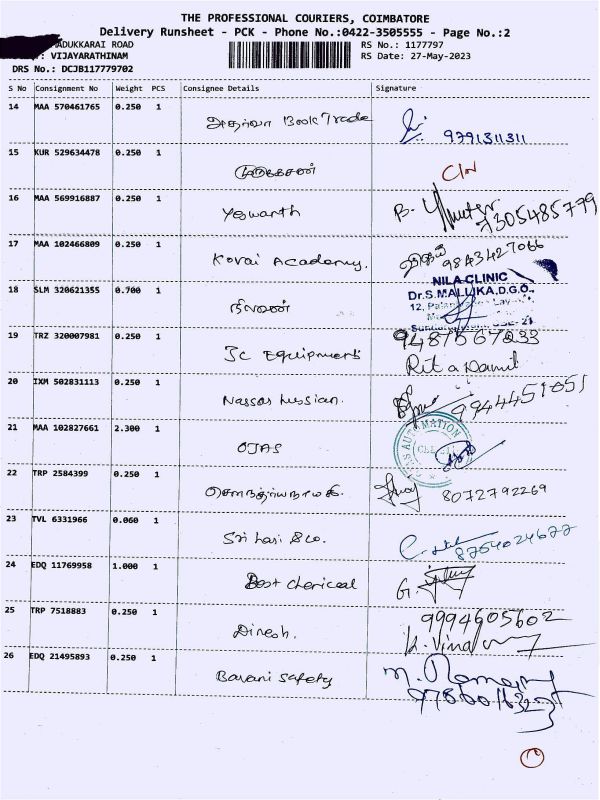 THE PROFESSIONAL COURIERS, COIMBATORE
Delivery Runsheet - PCK - Phone No.:0422-3505555 - Page No.:2
ADUKKARAI ROAD RS No.: 1177797
: VIJAYARATHINAM RS Date: 27-May-2023
DRS No.: DCJB117779702
S No Consignment No Weight PCS Consignee Details Signature
14 MAA 570461765 0.250 1 Book Trade 9791311311
15 KUR 529634478 0.250 1 முருகேசன்
16 MAA 569916887 0.250 1 Yeswanth B. 7305485779
17 MAA 102466809 0.250 1 Kovai Academy. 9843427066
18 SLM 320621355 0.700 1 நீலவன் NILA CLINIC
Dr.S.MALLIKA,D.G.O.
19 TRZ 320007981 0.250 1 Jc Equipments
Rita
20 IXM 502831113 0.250 1 9944451051
21 MAA 102827661 2.300 1 OJAS AUTOMATION
22 TRP 2584399 0.250 1 8072792269
23 TVL 6331966 0.060 1 Sri hari & co. 8754024677
24 EDQ 11769958 1.000 1 Best chemical G.
25 TRP 7518883 0.250 1 Dinesh. 9994605602
26 EDQ 21495893 0.250 1 Barani Safety